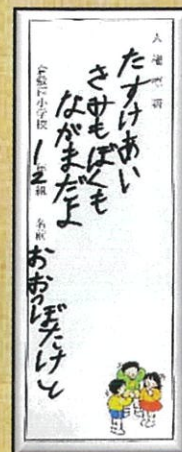 人権標語
たすけあい
さみもぼくも
ながまだよ
小学校 1年2組 名前 おおつぼたけと